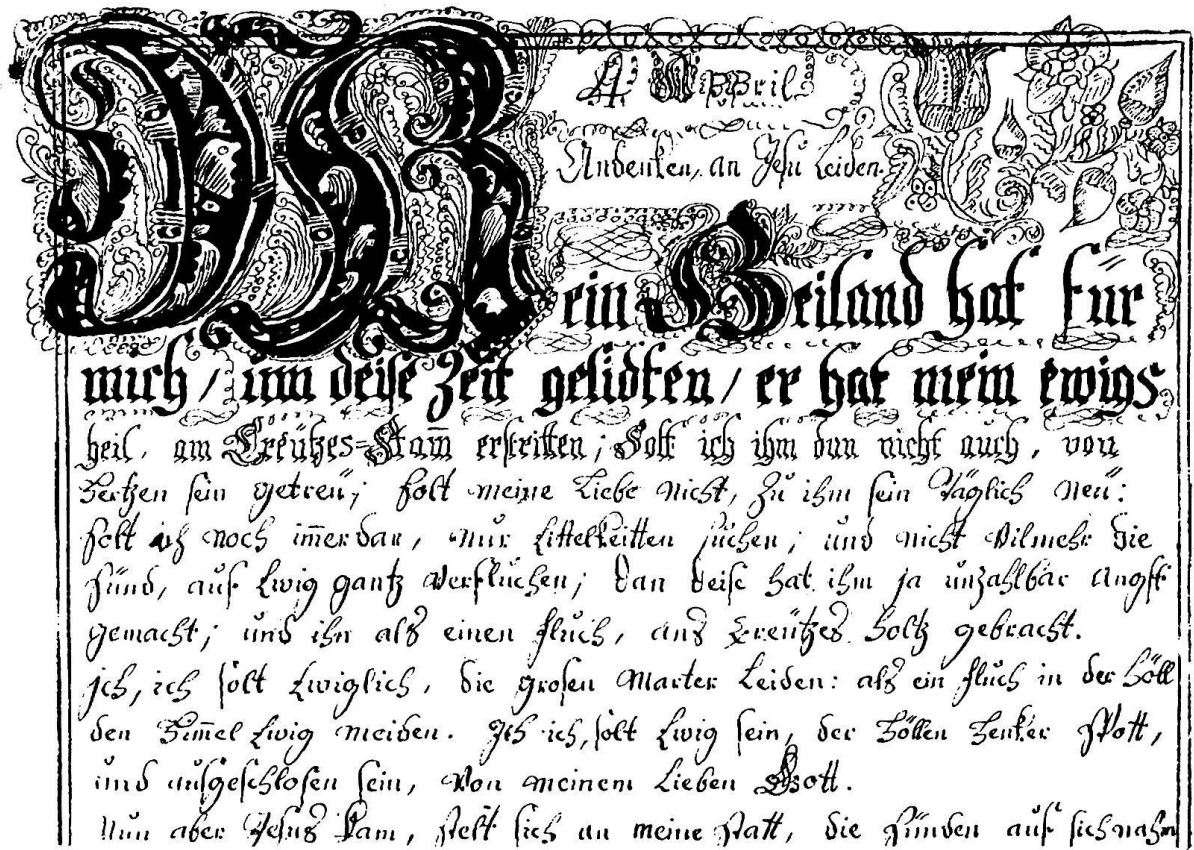 4 Appril
Andenken, an Jesu Leiden.
Mein Heiland hat für
mich / um deise Zeit gelidten / er hat mein ewigs
heil, am Creützes=Stam̄ erstritten; Solt ich ihm dan nicht auch, von
Hertzen sein getreü; solt meine Liebe nicht, zu ihm sein Täglich neü:
solt ich noch im̄erdar, nur Eittelkeitten suchen; und nicht vilmehr die
sünd, auf Ewig gantz verfluchen; dan deise hat ihm ja unzahlbar angst
gemacht; und ihn als einen fluch, ans Creützes holtz gebracht.
jch, ich solt Ewiglich, die grosen Marter Leiden: als ein fluch in der Höll
den Him̄el Ewig meiden. Jch ich, solt Ewig sein, der Höllen Henker Spott,
und ausgeschlosen sein, von meinem Lieben Gott.
Nun aber Jesus kam, stelt sich an meine statt, die sünden auf sich nahm